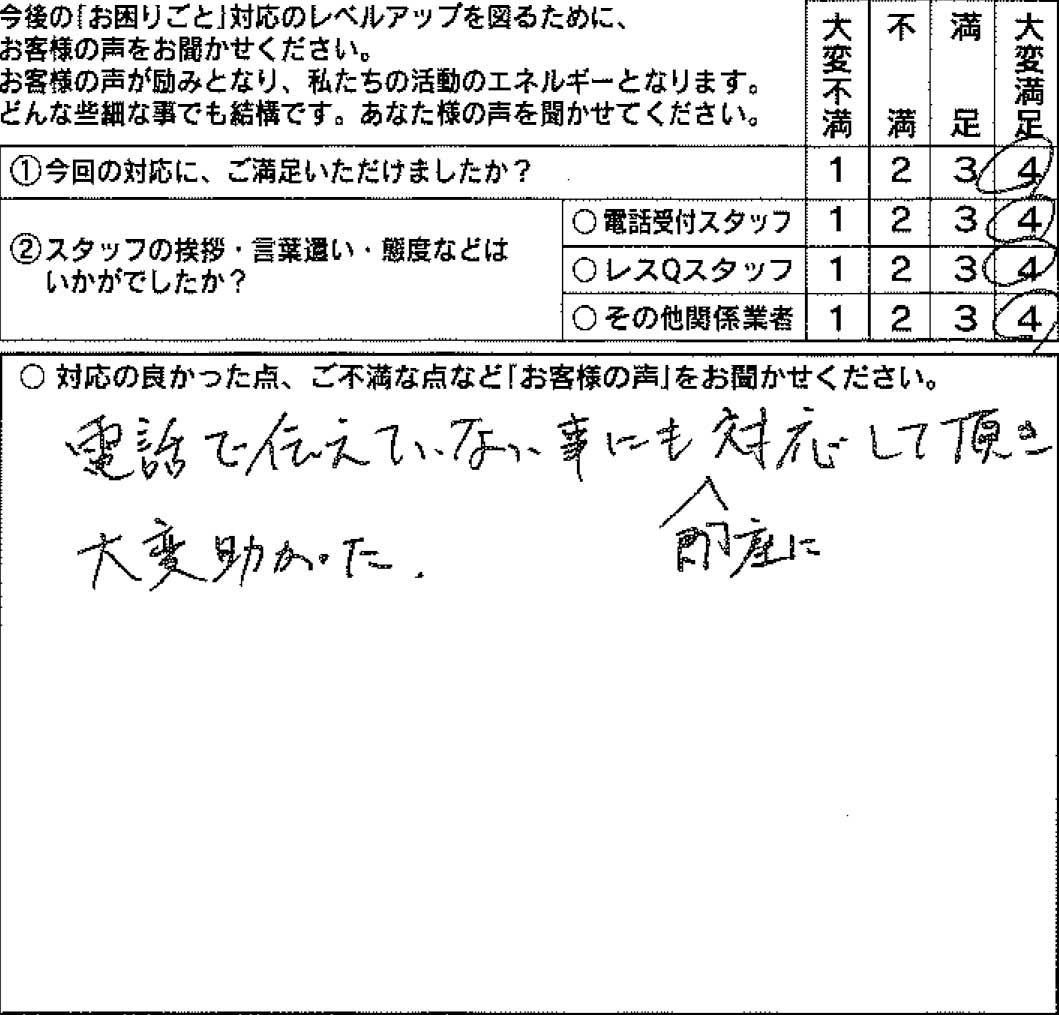 今後の「お困りごと」対応のレベルアップを図るために、
お客様の声をお聞かせください。
お客様の声が励みとなり、私たちの活動のエネルギーとなります。
どんな些細な事でも結構です。あなた様の声を聞かせてください。
大変不満 不満 満足 大変満足
①今回の対応に、ご満足いただけましたか? 1 2 3 4
②スタッフの挨拶・言葉遣い・態度などは
いかがでしたか?
○電話受付スタッフ 1 2 3 4
○レスQスタッフ 1 2 3 4
○その他関係業者 1 2 3 4
○ 対応の良かった点、ご不満な点など「お客様の声」をお聞かせください。
電話で伝えていない事にも対応して頂き
即座に
大変助かった.